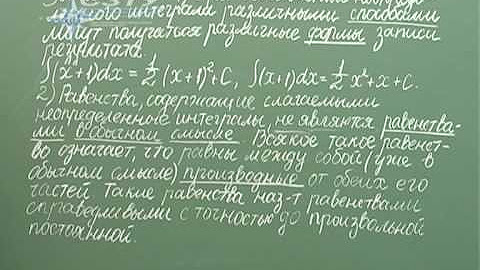 ленного интеграла различными способами
могут получаться различные формы записи
результата.
∫(x+1)dx = 1/2 (x+1)²+C, ∫(x+1)dx = 1/2 x²+x+C.
2) Равенства, содержащие слагаемыми
неопределенные интегралы, не являются равенства-
ми в обычном смысле. Всякое такое равенст-
во означает, что равны между собой (уже в
обычном смысле) производные от обеих его
частей. Такие равенства наз-т равенствами
справедливыми с точностью до произвольной
постоянной.